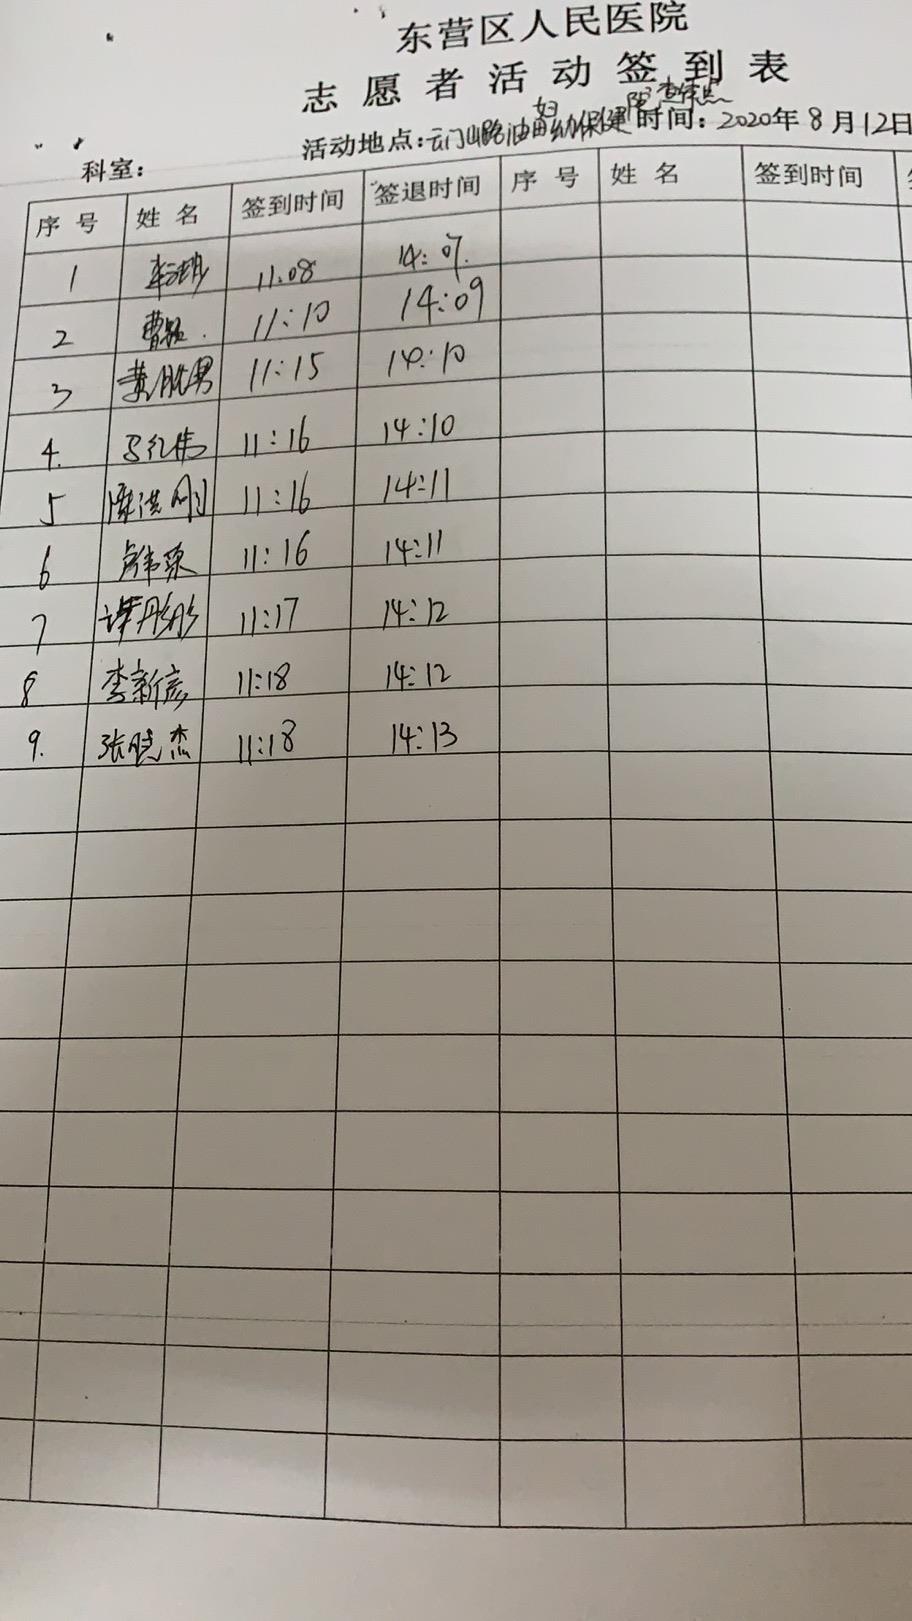 东营区人民医院
志愿者活动签到表
科室： 活动地点：云门山路油田妇幼保健院 时间：2020年8月12日
序号 姓名 签到时间 签退时间 序号 姓名 签到时间
1 11:08 14:07
2 11:10 14:09
3 黄胜男 11:15 14:10
4. 11:16 14:10
5 陈洪刚 11:16 14:11
6 11:16 14:11
7 谭丹彤 11:17 14:12
8 李新彦 11:18 14:12
9. 张晓杰 11:18 14:13